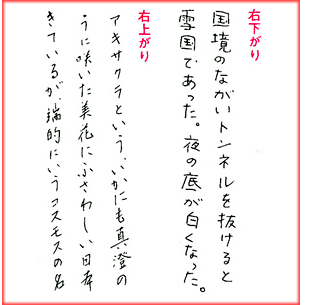 右下がり
国境のながいトンネルを抜けると
雪国であった。夜の底が白くなった。
右上がり
アキサクラという、いかにも真澄の
うに咲いた美花にふさわしい日本
きているが、端的にいうコスモスの名